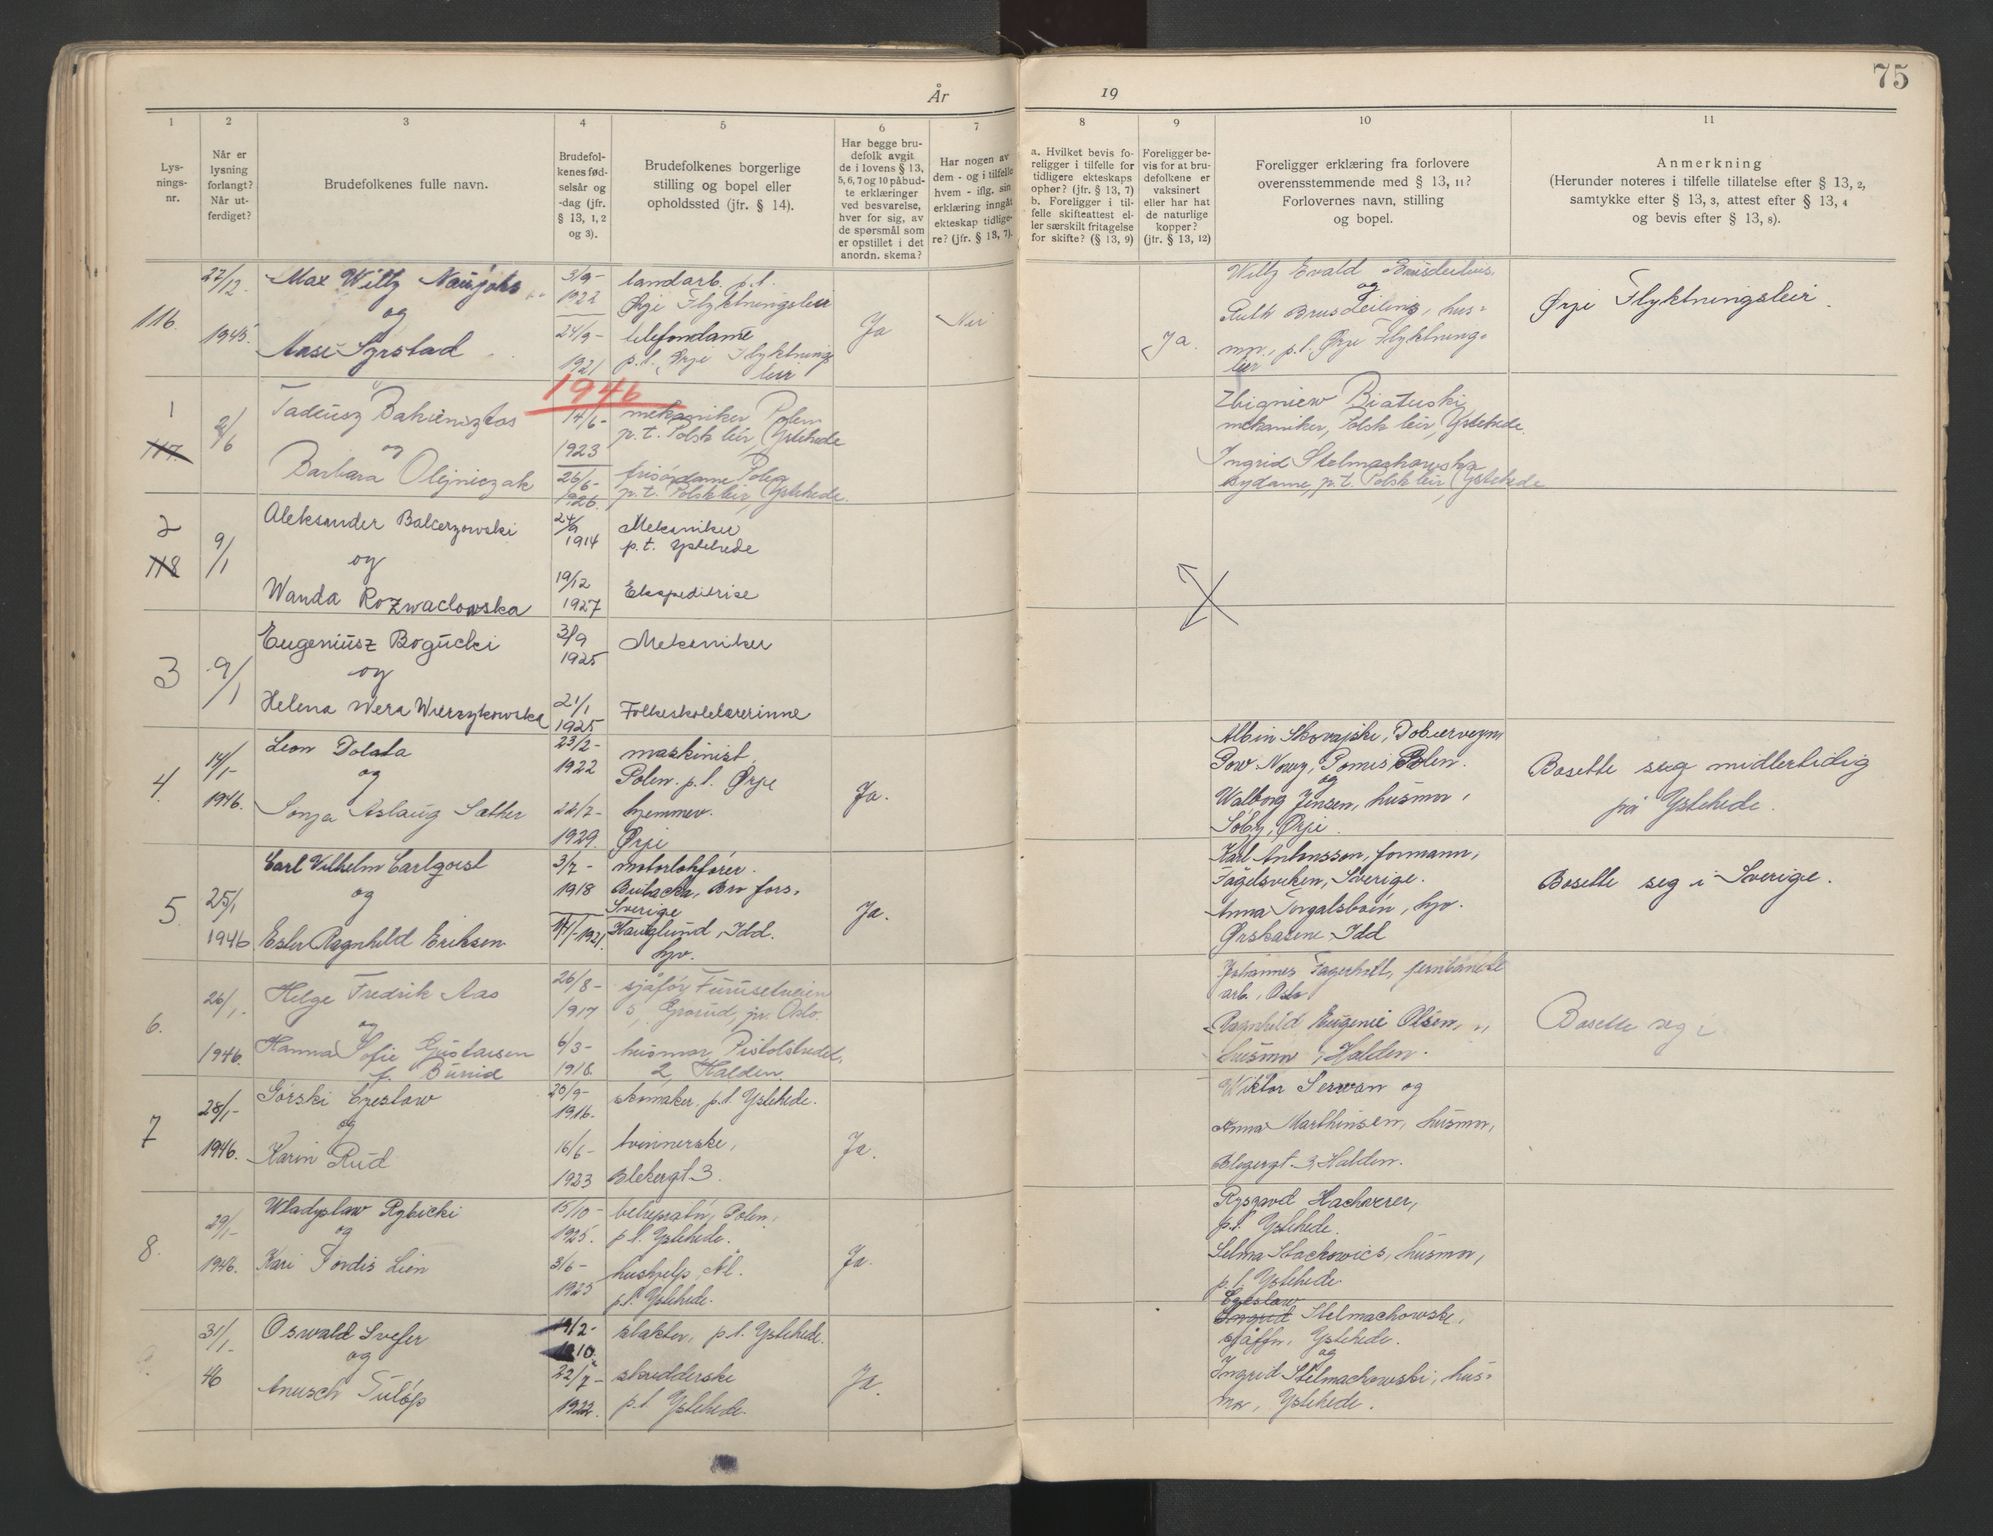 75
År
19
1
2
3
4
5
6
7
8
9
10
11
Lys-
nings-
nr.
Når er
lysning
forlangt?
Når ut-
ferdiget?
Brudefolkenes fulle navn.
Brudefol-
kenes fød-
selsår og
-dag (jfr.
§ 13, 1, 2
og 3).
Brudefolkenes borgerlige
stilling og bopel eller
opholdssted (jfr. § 14).
Har begge bru-
defolk avgit
de i lovens § 13,
5, 6, 7 og 10 påbud-
te erklæringer
ved besvarelse,
hver for sig, av
de spørsmål som
er opstillet i det
anordn. skema?
Har nogen av
dem - og i tilfelle
hvem - iflg. sin
erklæring inngåt
ekteskap tidlige-
re? (jfr. § 13, 7).
a. Hvilket bevis fo-
religger i tilfelle for
tidligere ekteskaps
ophør? (jfr. § 13, 7)
b. Foreligger i til-
felle skifteattest el-
ler særskilt fritagelse
for skifte? (§ 13, 9)
Foreligger be-
vis for at bru-
defolkene er
vaksinert
eller har hat
de naturlige
kopper?
(jfr. § 13, 12)
Foreligger erklæring fra forlovere
overensstemmende med § 13, 11?
Forlovernes navn, stilling
og bopel.
Anmerkning
(Herunder noteres i tilfelle tillatelse efter § 13, 2,
samtykke efter § 13, 3, attest efter § 13, 4
og bevis efter § 13, 8).
116.
27/12
1945.
Max Willy
og
Syrstad
3/9-
1922
24/9-
1921
landarb. p.t.
Ørje Flyktningsleir
telefondame
p.t. Ørje Flyktnings
leir
Ja
Nei
Ja.
Willy Evald
og
Ruth Brusdeilins, hus-
mor, p.t. Ørje Flyktning-
leir
Ørje Flyktningsleir.
1946
1
117.
2/6
Tadeusz
og
Barbara Olejniczak
14/6-
1923
26/6-
1926.
mekaniker Polen
p.t. Polsk leir, Ystehede
frisørdame Polen
p.t. Polsk leir, Ystehede.
Zbigniew Biatuski
mekaniker, Polsk leir, Ystehede.
Ingrid Stelmachowska
sydame, p.t. Polsk leir, Ystehede
2
118
9/1
Aleksander Balcerzowski
og
Wanda Rozwaclowska
24/9
1914
19/12
1927
Mekaniker
p.t. Ystehede
Ekspeditrise
3
9/1
Eugeniusz Bogucki
og
Helena Wera Wierzykowska
3/9
1925
21/1
1925
Mekaniker
Folkeskolelærerinne
4.
14/1-
1946.
Leon Dolata
og
Sonja Aslaug Sæther
23/2-
1922
22/7-
1929
maskinist,
Polen. p.t. Ørje
hjemmev.
Ørje
Ja.
Albin Skovajski,
Pow. Nowy, Polen.
og
Walborg Jensen, husmor,
Ørje.
Bosette seg midlertidig
på Ystehede.
5
25/1
1946
Carl Vilhelm Carlqvist
og
Ester Ragnhild Eriksen
3/7-
1918
14/1-1921
motorlokfører.
Bro fors.
Sverige
Hauglund, Idd.
hjv.
Ja.
Karl Antonsson, formann,
Fagelsviken, Sverige.
Anna Torgalsbøen, hjv.
Ørskasene Idd
Bosette seg i Sverige.
6.
26/1.
1946.
Helge Fredrik Aas
og
Hanna Sofie Gustavsen
f. Buvid
26/8-
1917
6/3-
1918
sjåfør Furusetveien
5, Grorud, pr. Oslo.
husmor, Pistolstredet
2, Halden.
Johannes Fagerholt,
arb., Oslo
Ragnhild Eugenie Olsen,
husmor, Halden.
Bosette seg i
7
28/1-
1946.
Gorski Czeslaw
og
Karin Rud
20/9-
1916.
16/6-
1923
skomaker, p.t. Ystehede.
tvinnerske,
Blekergt. 3.
Ja.
Wiktor Serwan og
Anna Marthinsen, husmor,
Blegergt. 3, Halden.
8.
29/1-
1946.
Wladyslaw Rybicki
og
Kari Tordis Lien
15/10-
1925.
3/6-
1925
Polen,
p.t. Ystehede.
hushjelp, Ål.
p.t. Ystehede.
Ja.
Rysgard Hacherrer,
p.t. Ystehede.
Selma Stachowics, husmor,
p.t. Ystehede.
31/1-
46
Oswald Svefer
og
Anusch Tuløp
19/2-
1910
22/7-
1922.
slakter, p.t. Ystehede.
skredderske
p.t. Ystehede.
Ja.
Czeslaw
Ingrid Stelmachowske,
sjåfør, Ystehede.
og
Ingrid Stelmachowski, hus-
mor, Ystehede.